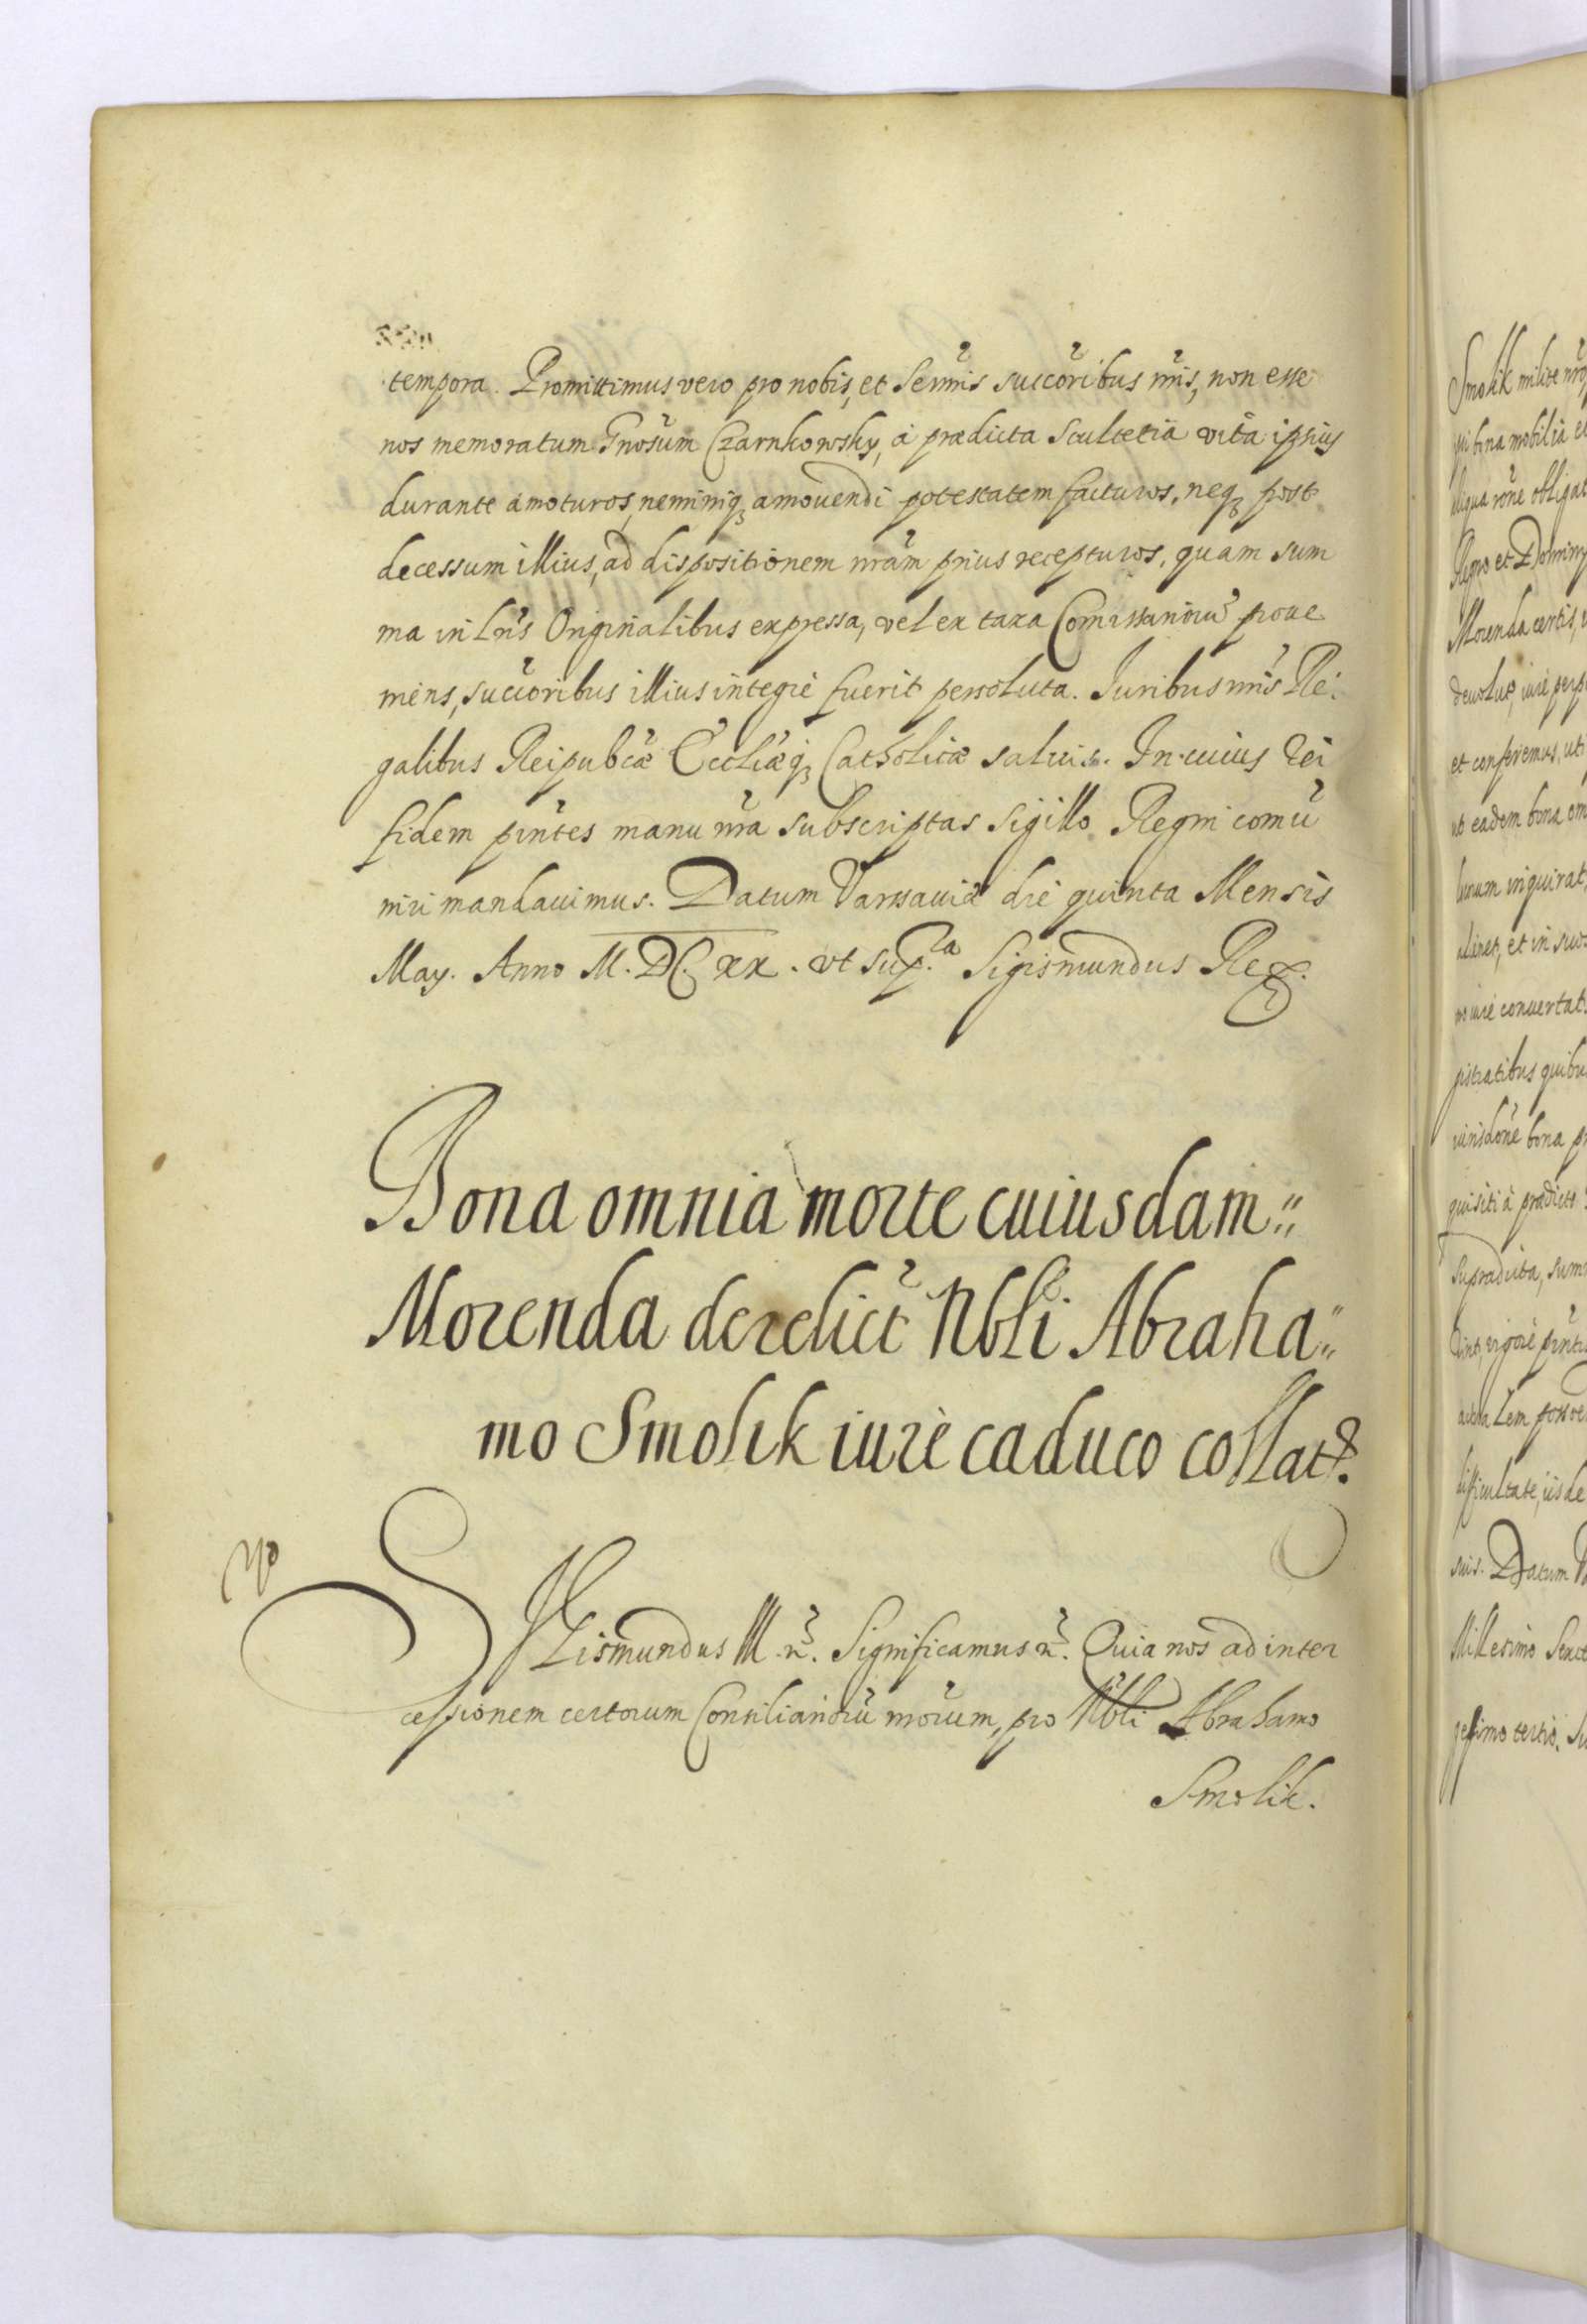 tempora. Promittimus vero pro nobis, et Sermis succoribus nris, non esse
nos memoratum Gnosum Czarnkowsky, à prædicta Scultetia vita ipsius
durante amoturos, neminiq amouendi potestatem facturos, neq post
decessum illius, ad dispositionem nram prius recepturos, quam sum
ma in Lris Originalibus expressa, vel ex taxa Comissarioru proue
niens, succoribus illius integrè fuerit persoluta. Iuribus nris Re:
galibus Reipubcæ Eccliæq Catholicæ saluis. In cuius rei
fidem pntes manu nra subscriptas sigillo Regni comu
niri mandauimus. Datum Varssauiæ die quinta Mensis
May. Anno M.DC.XX. vt sup.a Sigismundus Rex.
Bona omnia morte cuiusdam
Morenda derelict Nbli Abraha
mo Smolik iurè caduco collat.
SIGismundus III. Significamus Quia nos ad inter
cessionem certorum Consiliarioru nrorum, pro Nbli Abrahamo
Smolik.
Smolik milite nro
bona mobilia et
aliqua rone obligat
Regno et Dominy
Morenda certis,
deuolut, iurè perp
et conferemus, uti
ut eadem bona om
inquirat,
et in suos
iurè conuertat
gistratibus quibu
iurisdone bona
quisiti à prædicto
supradicta, summ
vigore pntiu
difficultate, iisde
suis. Datum
Millesimo Sexce
gesimo tertio.